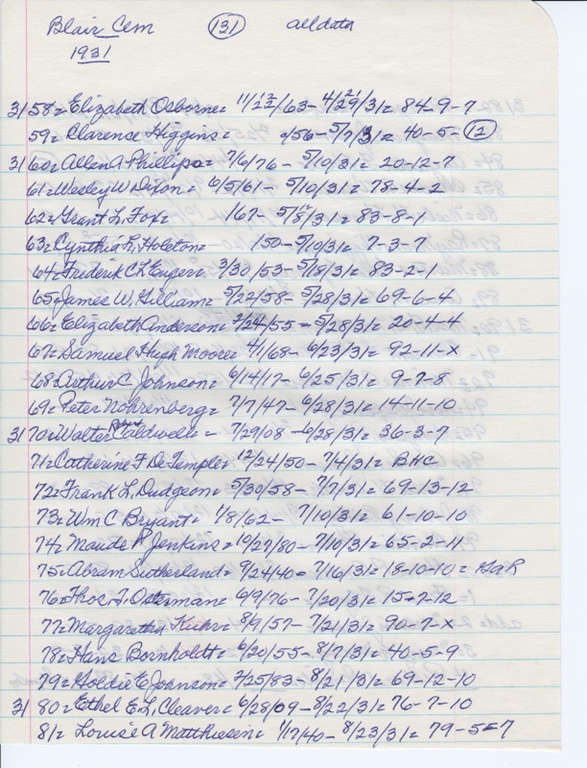 Blair Cem (131) alldata
1931
3158= Elizabeth Osborne= 11/22/63- 4/29/31= 84-9-7
59= Clarense Higgins= /56- 5/7/31= 40-5-(12)
3160= Allen A Phillips= 7/6/76- 5/10/31= 20-12-7
61= Wesley W Dixon= 6/5/61- 5/10/31= 78-4-2
62= Grant L. Fox= /67- 5/18/31= 83-8-1
63= Cynthia L. Holston= /50- 5/10/31= 7-3-7
64= Frederick C L Eugers= 3/30/53- 5/18/31= 83-2-1
65= James W. Gilliam= 5/22/58- 5/28/31= 69-6-4
66= Elizabeth Anderson= 2/24/55- 5/28/31= 20-4-4
67= Samuel Hugh Moore= 4/1/68- 6/23/31= 92-11-x
68= Arthur C Johnson= 6/14/17- 6/25/31= 9-7-8
69= Peter Nohrenberg= 7/7/47- 6/28/31= 14-11-10
3170= Walter Caldwell= 7/29/08- 6/28/31= 36-3-7
71= Catherine F De Temple= 12/24/50- 7/4/31= BHC
72= Frank L. Dudgeon= 5/30/58- 7/7/31= 69-13-12
73= Wm C Bryant= 1/8/62- 7/10/31= 61-10-10
74= Maude P Jenkins= 10/27/80- 7/10/31= 65-2-11
75= Abram Sutherland= 9/24/40- 7/16/31= 18-10-10= GaR
76= Thos. T. Osterman= 6/9/76- 7/20/31= 15-2-12
77= Margaretha Kuhr= 8/9/57- 7/21/31= 90-7-x
78= Hans Bornholtt= 6/20/55- 8/7/31= 40-5-9
79= Goldie E Johnson= 2/25/83- 8/21/31= 69-12-10
3180= Ethel E. L. Cleaver= 6/28/09- 8/22/31= 76-7-10
81= Louise A Matthiesen= 1/17/40- 8/23/31= 79-5-7